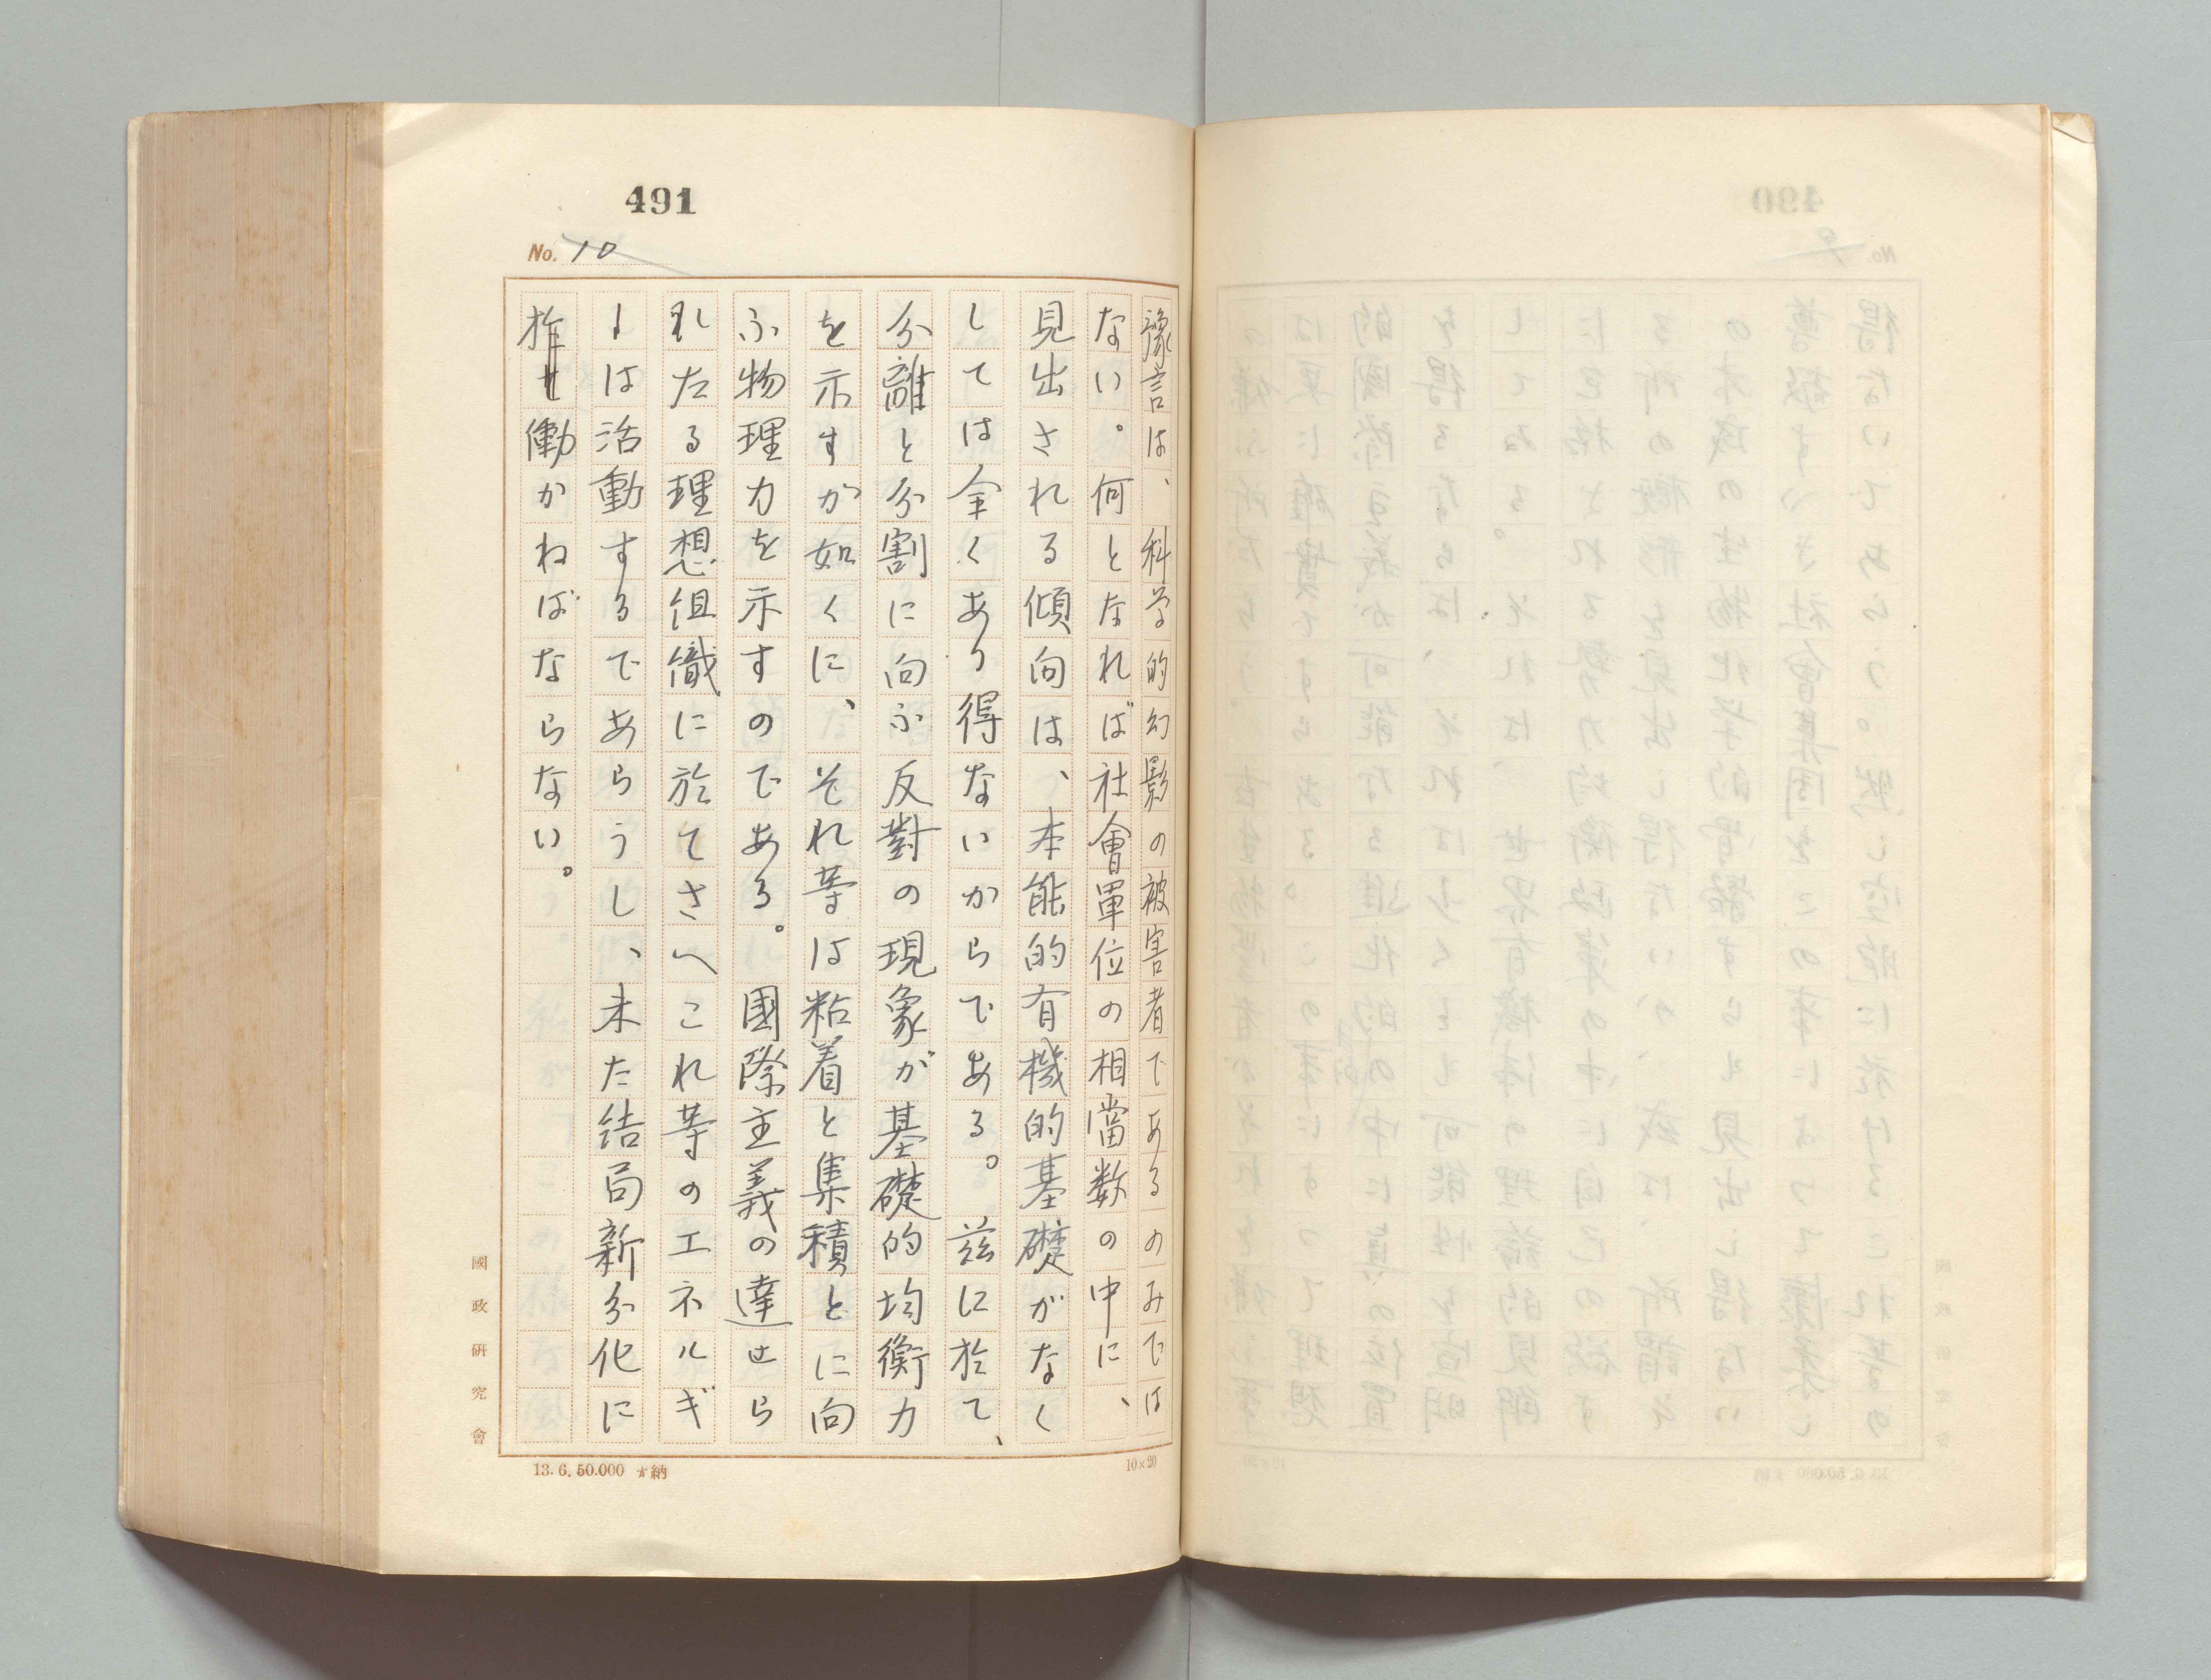 491
No. 10
豫言は、科学的幻影の被害者であるのみでは
ない。何となれば社會單位の相當数の中に、
見出される傾向は、本能的有機的基礎がなく
しては全くあり得ないからである。茲に於て、
分離と分割に向ふ反對の現象が基礎的均衡力
を示すが如くに、それ等は粘着と集積とに向
ふ物理力を示すのである。國際主義の達せら
れたる理想組織に於てさへこれ等のエネルギ
ーは活動するであらうし、未た結局新分化に
働かねばならない。
國政研究會
13.6.50.000 納
10×20